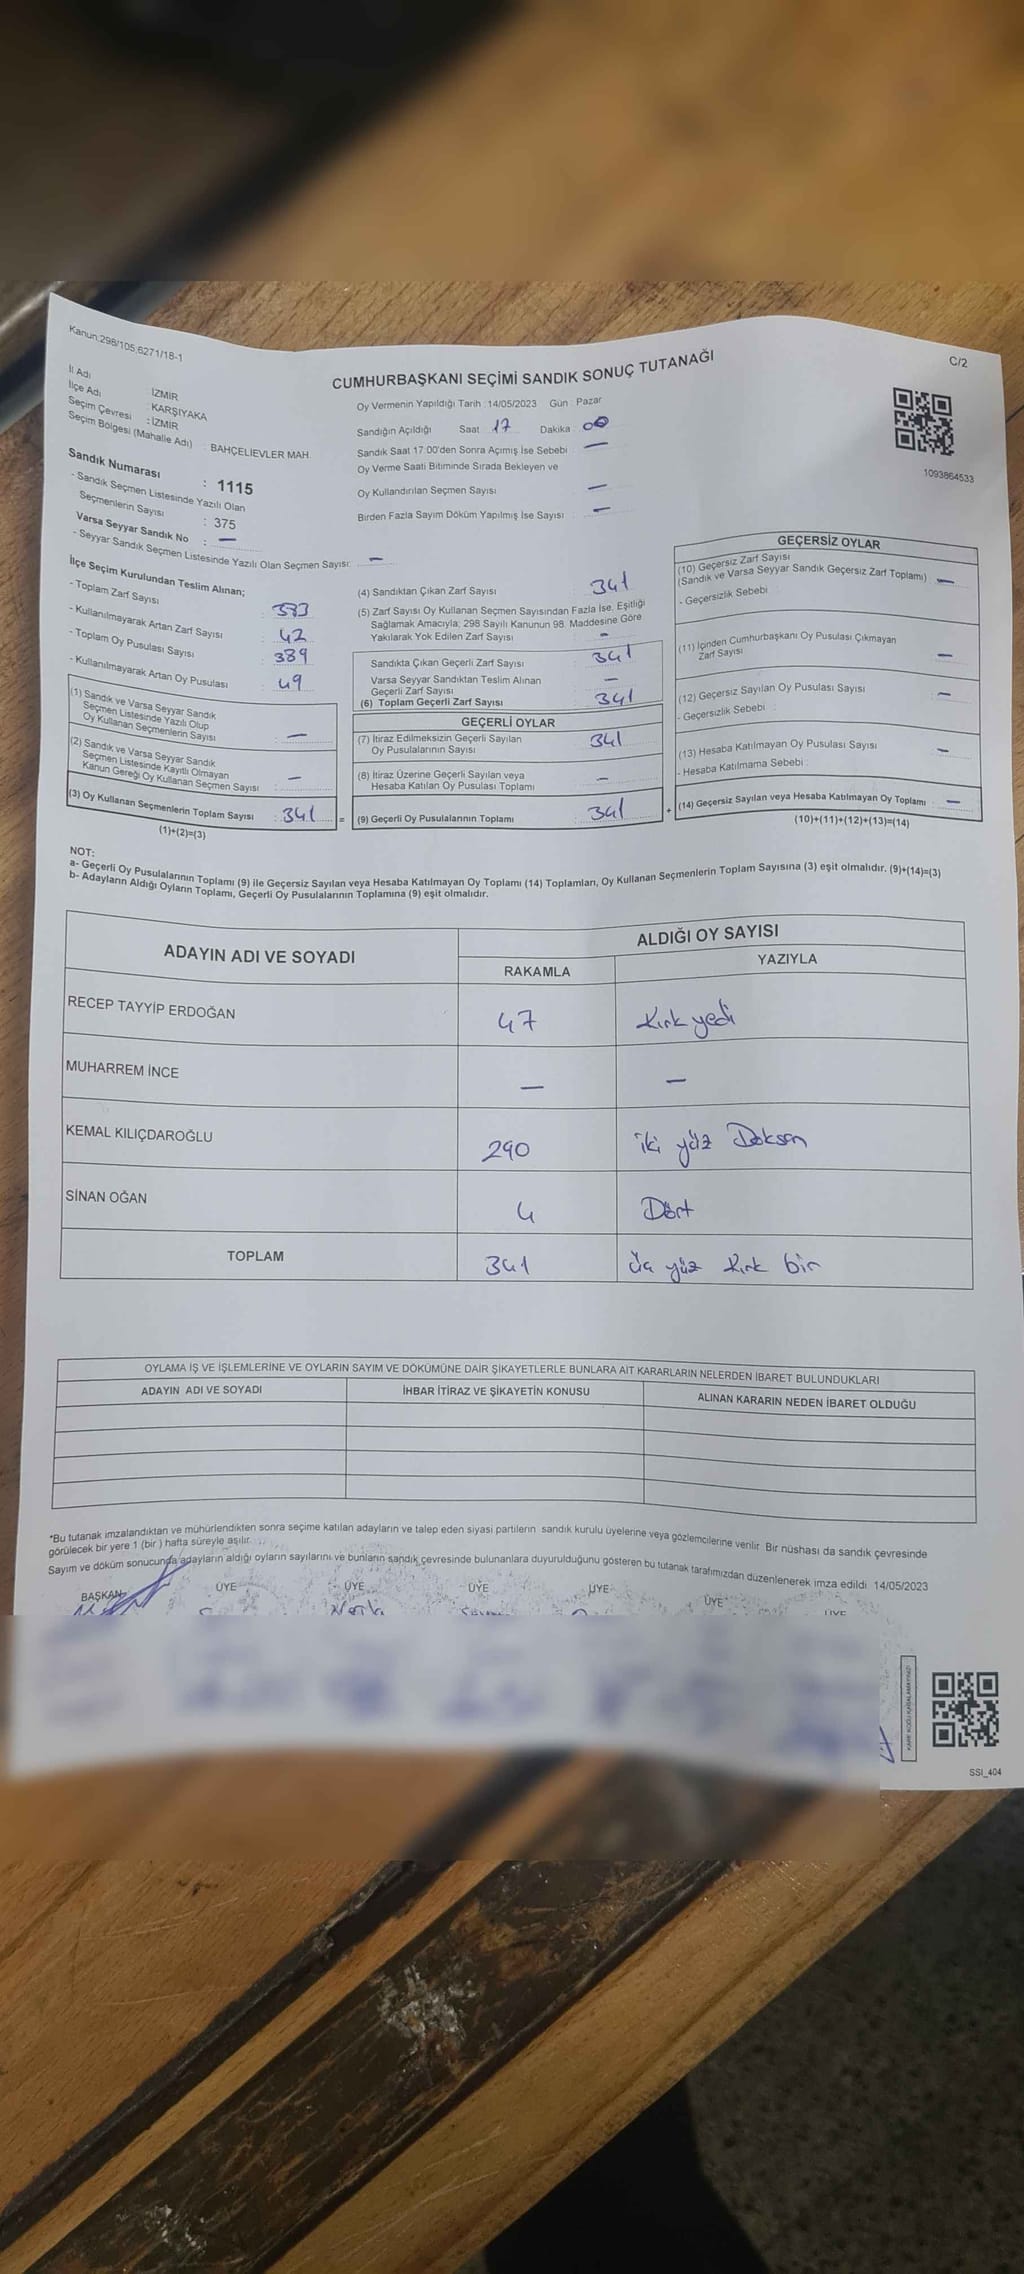 Kanun;298/105,6271/18-1
C/2
CUMHURBAŞKANI SEÇİMİ SANDIK SONUÇ TUTANAĞI
İl Adı : İZMİR
İlçe Adı : KARŞIYAKA
Seçim Çevresi : İZMİR
Seçim Bölgesi (Mahalle Adı) : BAHÇELİEVLER MAH.
Sandık Numarası : 1115
- Sandık Seçmen Listesinde Yazılı Olan
Seçmenlerin Sayısı : 375
Varsa Seyyar Sandık No : —
- Seyyar Sandık Seçmen Listesinde Yazılı Olan Seçmen Sayısı: —
Oy Vermenin Yapıldığı Tarih : 14/05/2023 Gün : Pazar
Sandığın Açıldığı Saat : 17 Dakika : 00
Sandık Saat 17:00'den Sonra Açımış İse Sebebi : —
Oy Verme Saati Bitiminde Sırada Bekleyen ve
Oy Kullandırılan Seçmen Sayısı : —
Birden Fazla Sayım Döküm Yapılmış İse Sayısı : —
1093864533
İlçe Seçim Kurulundan Teslim Alınan;
- Toplam Zarf Sayısı : 383
- Kullanılmayarak Artan Zarf Sayısı : 42
- Toplam Oy Pusulası Sayısı : 389
- Kullanılmayarak Artan Oy Pusulası : 49
(1) Sandık ve Varsa Seyyar Sandık
Seçmen Listesinde Yazılı Olup
Oy Kullanan Seçmenlerin Sayısı : —
(2) Sandık ve Varsa Seyyar Sandık
Seçmen Listesinde Kayıtlı Olmayan
Kanun Gereği Oy Kullanan Seçmen Sayısı : —
(3) Oy Kullanan Seçmenlerin Toplam Sayısı : 341 =
(1)+(2)=(3)
(4) Sandıktan Çıkan Zarf Sayısı : 341
(5) Zarf Sayısı Oy Kullanan Seçmen Sayısından Fazla İse, Eşitliği
Sağlamak Amacıyla; 298 Sayılı Kanunun 98. Maddesine Göre
Yakılarak Yok Edilen Zarf Sayısı : —
Sandıkta Çıkan Geçerli Zarf Sayısı : 341
Varsa Seyyar Sandıktan Teslim Alınan
Geçerli Zarf Sayısı : —
(6) Toplam Geçerli Zarf Sayısı : 341
GEÇERLİ OYLAR
(7) İtiraz Edilmeksizin Geçerli Sayılan
Oy Pusulalarının Sayısı : 341
(8) İtiraz Üzerine Geçerli Sayılan veya
Hesaba Katılan Oy Pusulası Toplamı : —
(9) Geçerli Oy Pusulalarının Toplamı : 341 +
GEÇERSİZ OYLAR
(10) Geçersiz Zarf Sayısı
(Sandık ve Varsa Seyyar Sandık Geçersiz Zarf Toplamı) : —
- Geçersizlik Sebebi :
(11) İçinden Cumhurbaşkanı Oy Pusulası Çıkmayan
Zarf Sayısı : —
(12) Geçersiz Sayılan Oy Pusulası Sayısı : —
- Geçersizlik Sebebi :
(13) Hesaba Katılmayan Oy Pusulası Sayısı : —
- Hesaba Katılmama Sebebi :
(14) Geçersiz Sayılan veya Hesaba Katılmayan Oy Toplamı : —
(10)+(11)+(12)+(13)=(14)
NOT:
a- Geçerli Oy Pusulalarının Toplamı (9) ile Geçersiz Sayılan veya Hesaba Katılmayan Oy Toplamı (14) Toplamları, Oy Kullanan Seçmenlerin Toplam Sayısına (3) eşit olmalıdır. (9)+(14)=(3)
b- Adayların Aldığı Oyların Toplamı, Geçerli Oy Pusulalarının Toplamına (9) eşit olmalıdır.
ADAYIN ADI VE SOYADI ALDIĞI OY SAYISI
RAKAMLA YAZIYLA
RECEP TAYYİP ERDOĞAN 47 Kırk yedi
MUHARREM İNCE — —
KEMAL KILIÇDAROĞLU 290 iki yüz Doksan
SİNAN OĞAN 4 Dört
TOPLAM 341 üç yüz kırk bir
OYLAMA İŞ VE İŞLEMLERİNE VE OYLARIN SAYIM VE DÖKÜMÜNE DAİR ŞİKAYETLERLE BUNLARA AİT KARARLARIN NELERDEN İBARET BULUNDUKLARI
ADAYIN ADI VE SOYADI İHBAR İTİRAZ VE ŞİKAYETİN KONUSU ALINAN KARARIN NEDEN İBARET OLDUĞU
*Bu tutanak imzalandıktan ve mühürlendikten sonra seçime katılan adayların ve talep eden siyasi partilerin sandık kurulu üyelerine veya gözlemcilerine verilir. Bir nüshası da sandık çevresinde
görülecek bir yere 1 (bir ) hafta süreyle asılır.
Sayım ve döküm sonucunda adayların aldığı oyların sayılarını ve bunların sandık çevresinde bulunanlara duyurulduğunu gösteren bu tutanak tarafımızdan düzenlenerek imza edildi. 14/05/2023
BAŞKAN ÜYE ÜYE ÜYE ÜYE ÜYE ÜYE
SSI_404